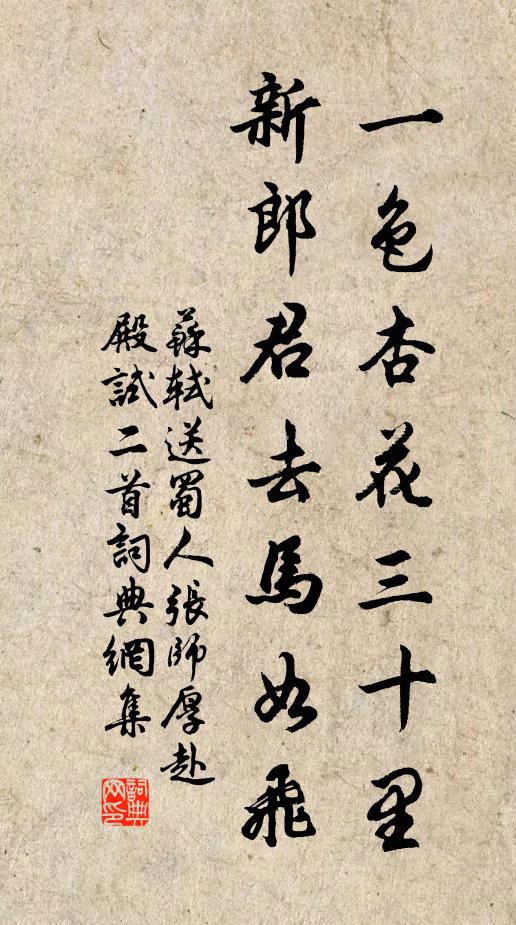 一色杏花三十里
新郎君去馬如飛
蘇軾送蜀人張師厚赴
殿試二首詞典網集
詞典網印